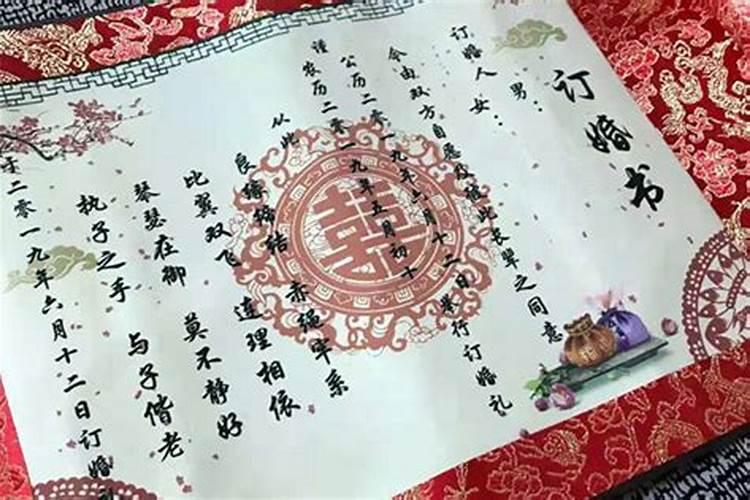 订婚书
订婚人男:
女:
今由双方自愿及彼此长辈之同意
谨
公历二零一九年六月十二日举行订婚礼
农历二零一九年五月初十
从此
良缘缔结 赤绳牢系
比翼双飞 连理相依
琴瑟在御 莫不静好
执子之手 与子偕老
于二零一九年六月十二日订婚